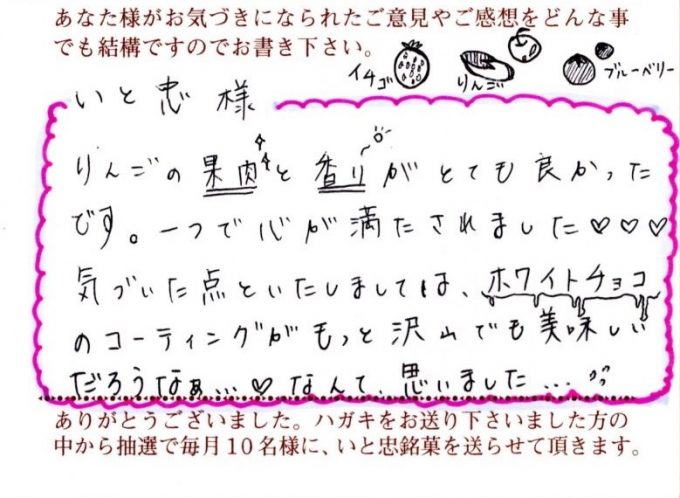 あなた様がお気づきになられたご意見やご感想をどんな事
でも結構ですのでお書き下さい。
イチゴ りんご ブルーベリー
いと忠 様
りんごの果肉と香りがとても良かった
です。一つで心が満たされました♡♡♡
気づいた点といたしましては、ホワイトチョコ
のコーティングがもっと沢山でも美味しい
だろうなぁ…♡なんて、思いました…
ありがとうございました。ハガキをお送り下さいました方の
中から抽選で毎月10名様に、いと忠銘菓を送らせて頂きます。